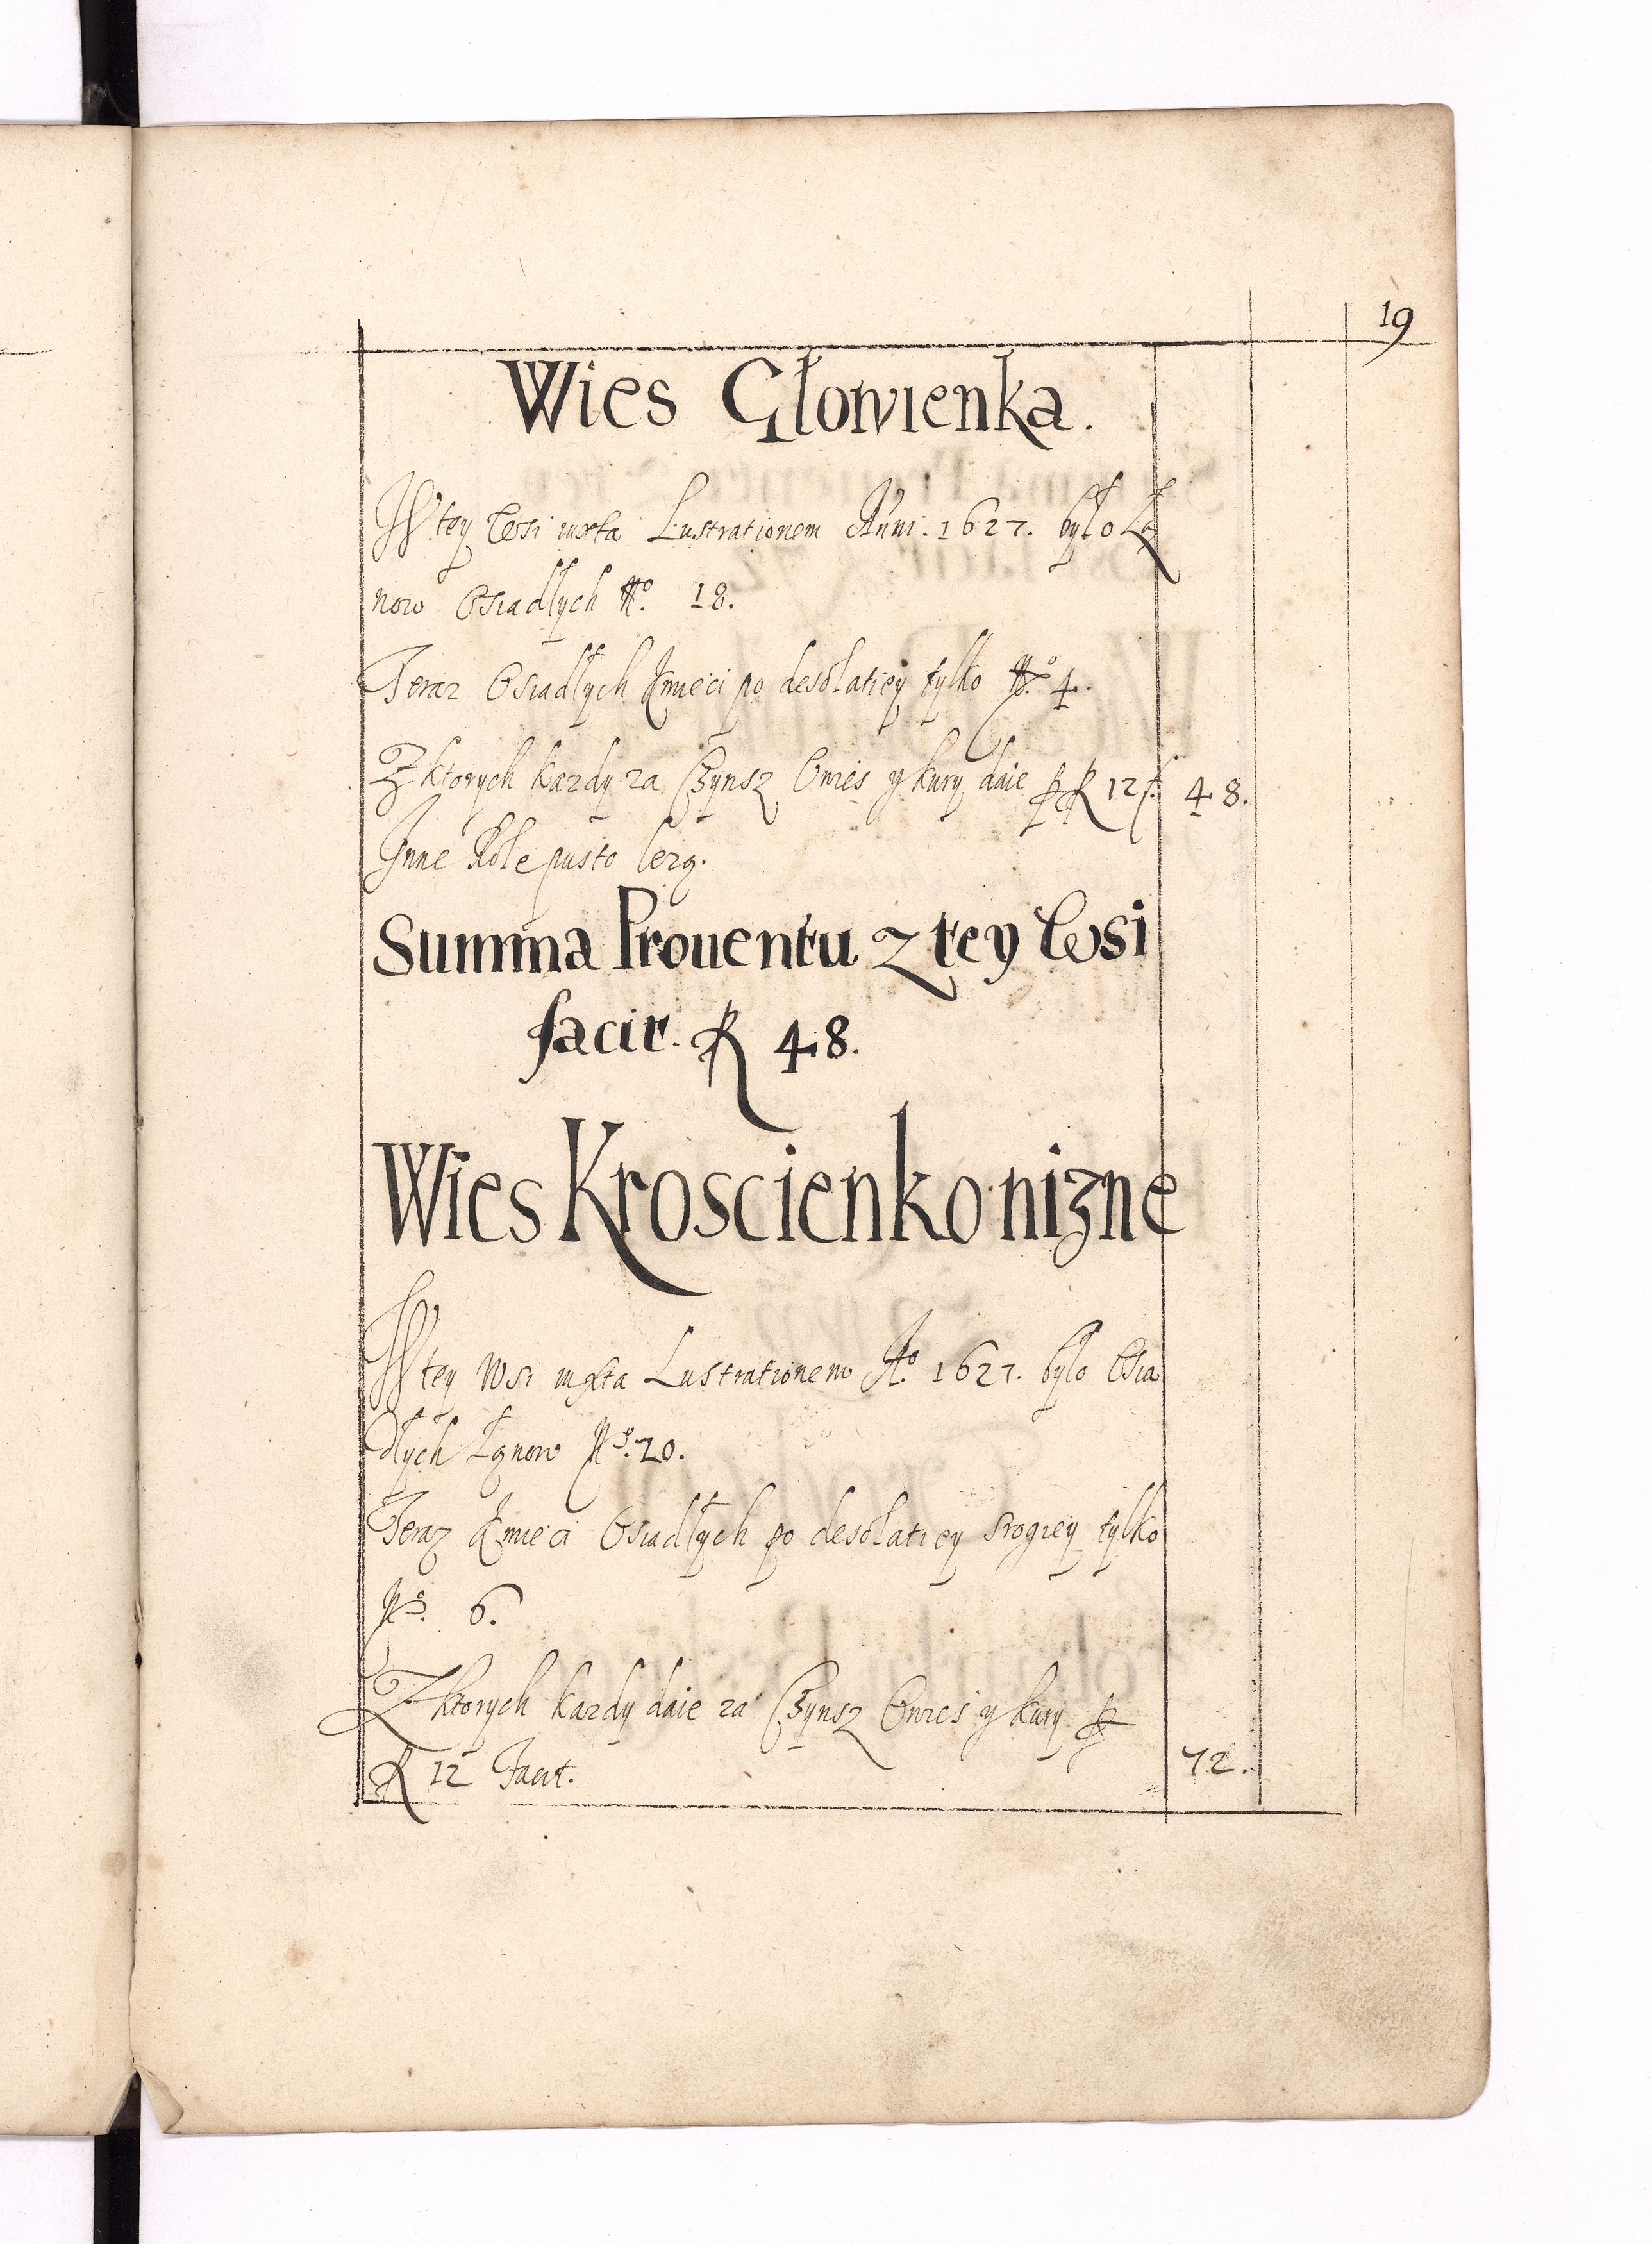 19
Wies Głowienka.
W tey Wsi iuxta Lustrationem Anni. 1627. było Ła
now Osiadłych No. 18.
Teraz Osiadłych Kmieci po desolatiey tylko No. 4.
Z ktorych kazdy za Czynsz Owies y kury daie p R 12 f. 48.
Inne Role pusto lezą.
Summa Prouentu z tey Wsi
facit. R 48.
Wies Kroscienko nizne
W tey Wsi iuxta Lustrationem Ao. 1627. bylo Osia
dłych Łanow No. 20.
Teraz Kmieci Osiadłych po desolatiey srogiey tylko
No. 6.
Z ktorych kazdy daie za Czynsz Owies y kury p
R 12 Facit. 72.